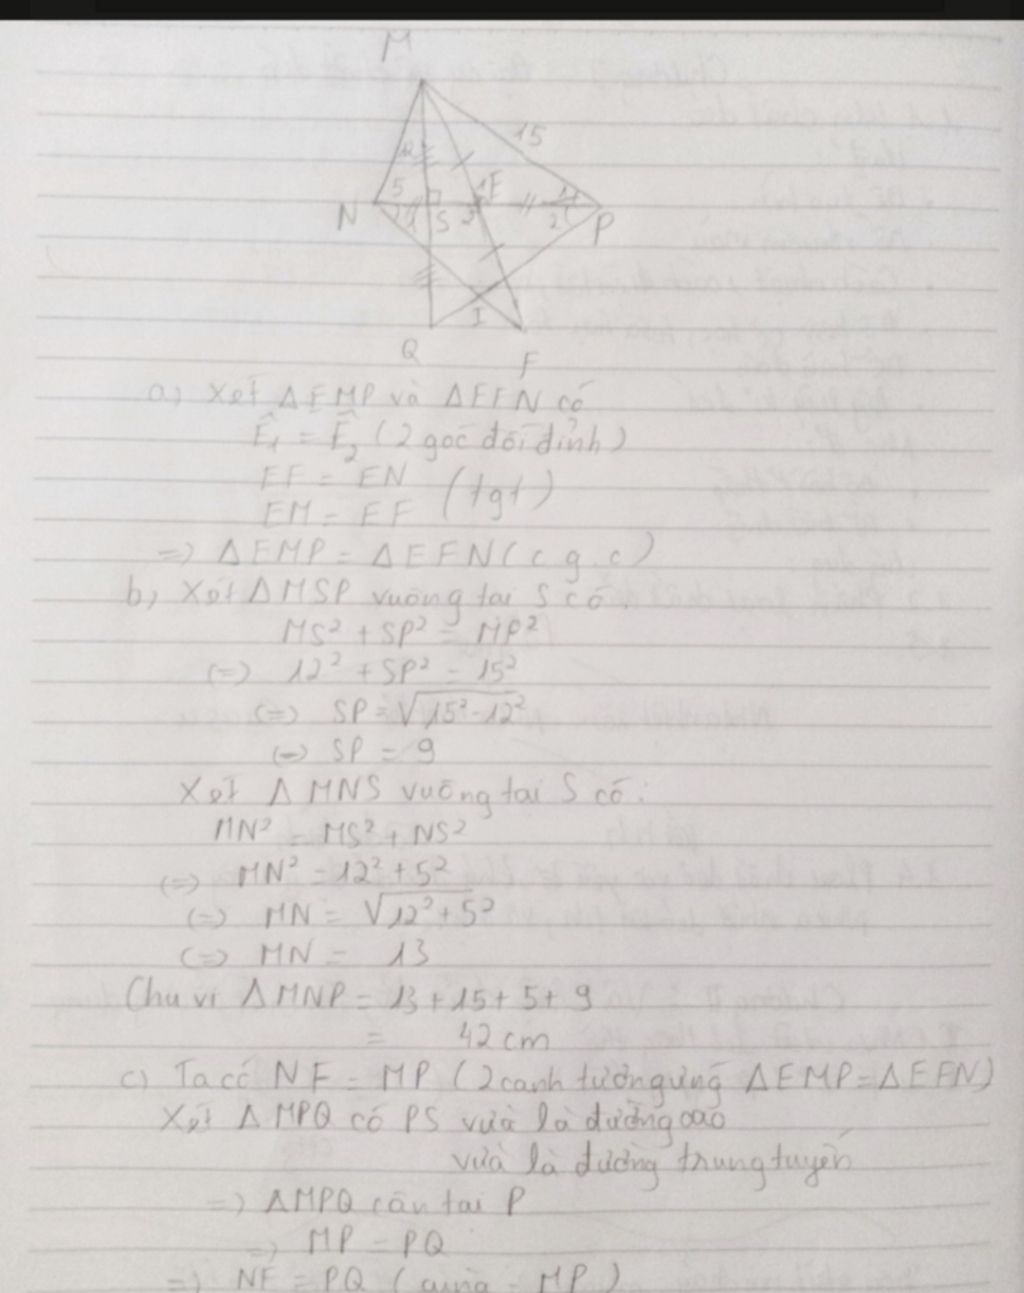 M
15
12
5
E
1
1
N
S
2
2
P
I
Q
F
a) Xét ΔEMP và ΔEFN có
Ê1 = Ê2 (2 góc đối đỉnh)
EF = EN
(tgt)
EM = EF
=> ΔEMP = ΔEFN (c.g.c)
b) Xét ΔMSP vuông tại S có:
MS² + SP² = MP²
(=) 12² + SP² = 15²
(=) SP = √15²-12²
(=) SP = 9
Xét ΔMNS vuông tại S có:
MN² = MS² + NS²
(=) MN² = 12² + 5²
(=) MN = √12²+5²
(=) MN = 13
Chu vi ΔMNP = 13 + 15 + 5 + 9
= 42 cm
c) Ta có NF = MP (2 cạnh tương ứng ΔEMP = ΔEFN)
Xét ΔMPQ có PS vừa là đường cao
vừa là đường trung tuyến
=) ΔMPQ cân tại P
=) MP = PQ
=) NF = PQ (cùng = MP)